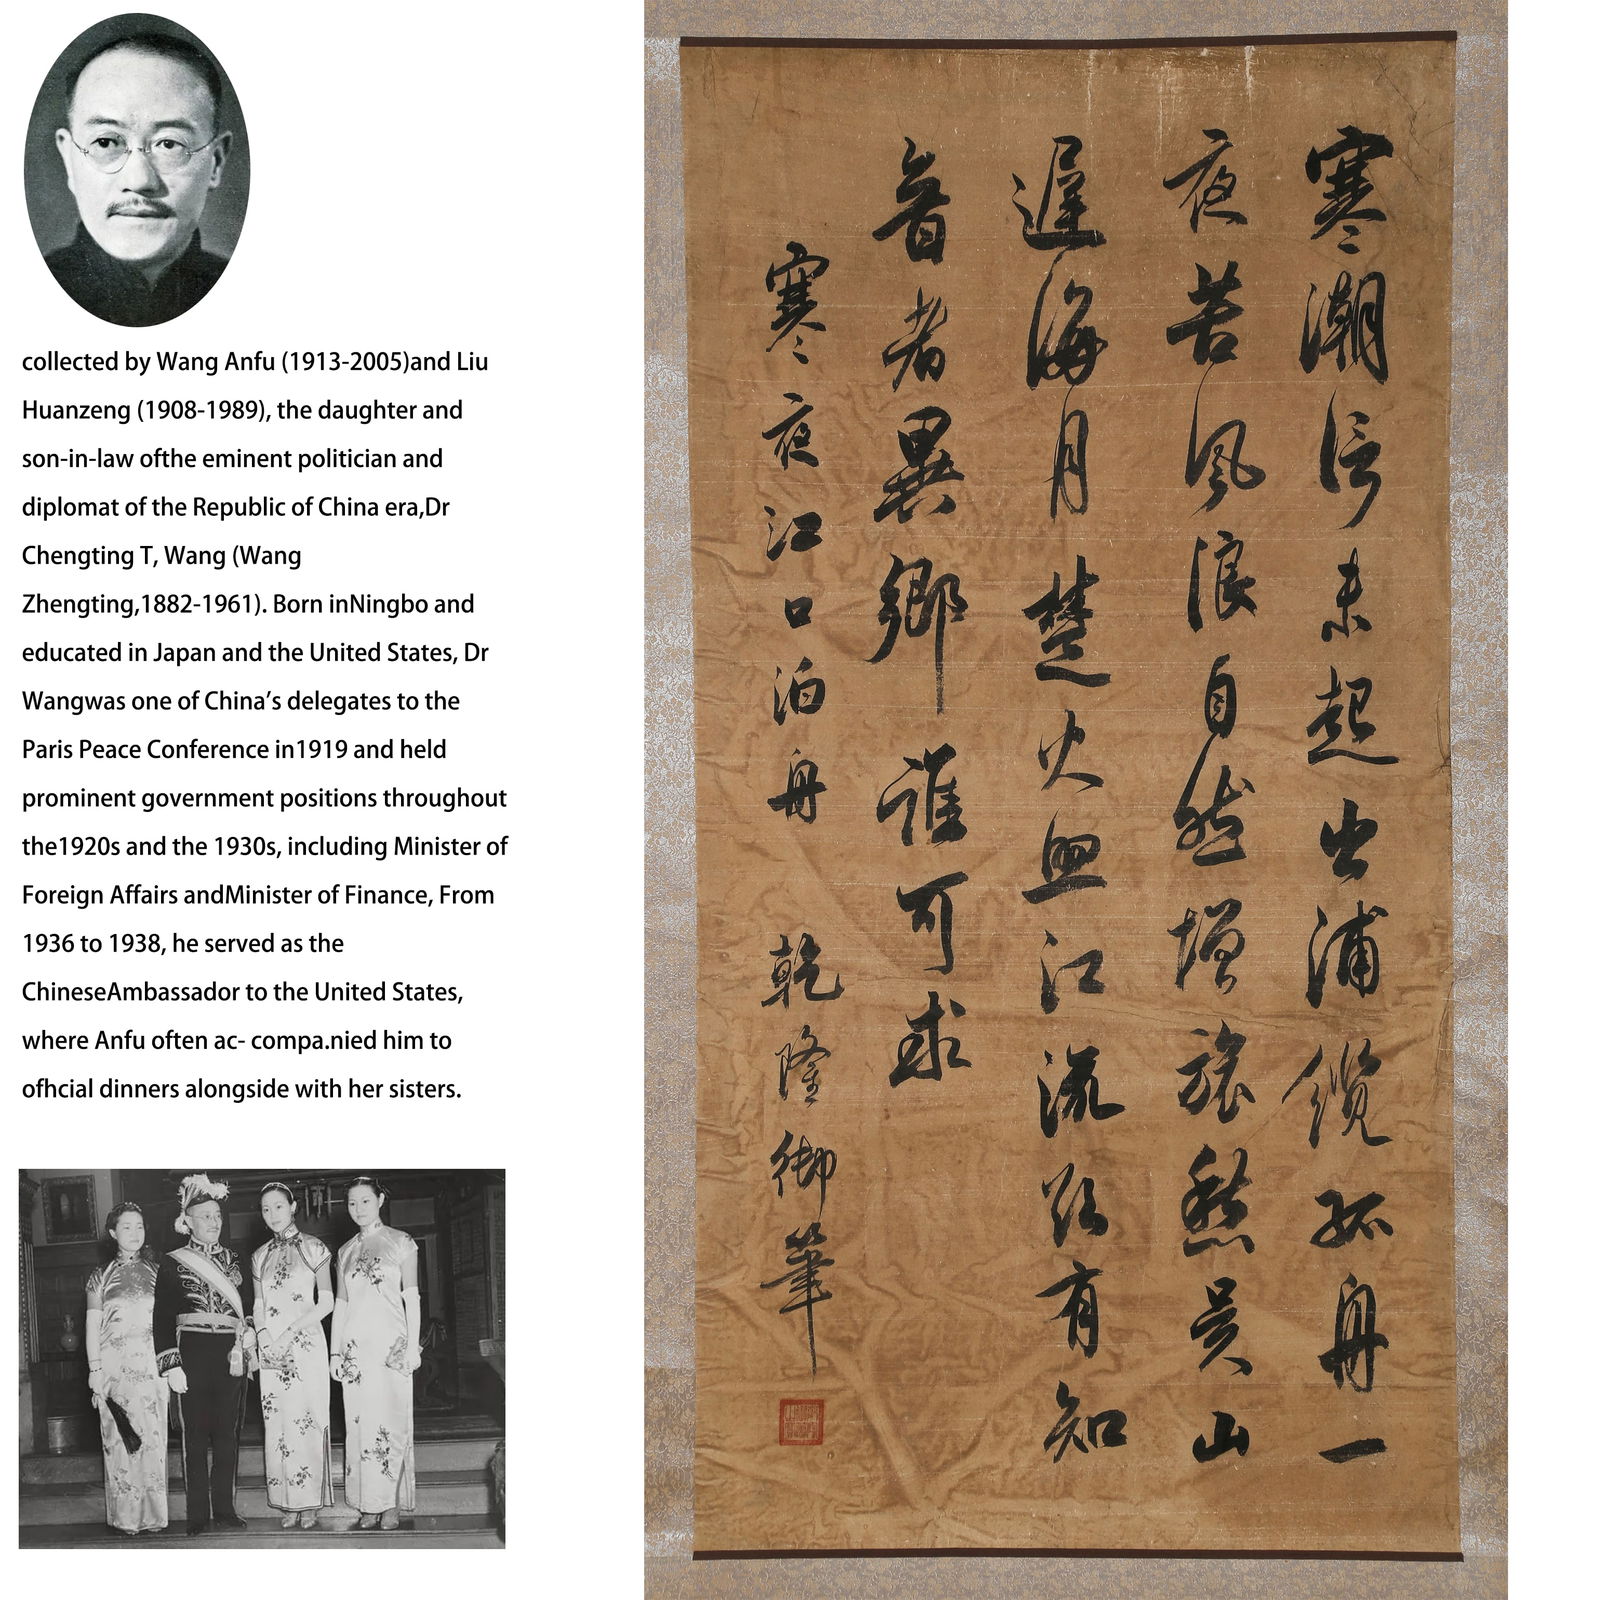 collected by Wang Anfu (1913-2005)and Liu
Huanzeng (1908-1989), the daughter and
son-in-law ofthe eminent politician and
diplomat of the Republic of China era,Dr
Chengting T, Wang (Wang
Zhengting,1882-1961). Born inNingbo and
educated in Japan and the United States, Dr
Wangwas one of China’s delegates to the
Paris Peace Conference in1919 and held
prominent government positions throughout
the1920s and the 1930s, including Minister of
Foreign Affairs andMinister of Finance, From
1936 to 1938, he served as the
ChineseAmbassador to the United States,
where Anfu often ac- compa.nied him to
ofhcial dinners alongside with her sisters.
寒潮信未起出浦纜孤舟一
夜苦風浪自然增旅愁吳山
遲海月楚火照江流欲有知
音者異鄉誰可求
寒夜江口泊舟 乾隆御筆